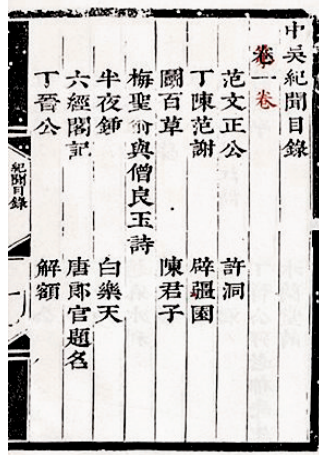 中吳紀聞目錄
卷一卷
范文正公　許洞
丁陳范謝　辟疆園
鬭百草　陳君子
梅聖俞與僧良玉詩
半夜鍾　白樂天
六經閣記　唐郎官題名
丁晉公　解額
紀聞目錄
一